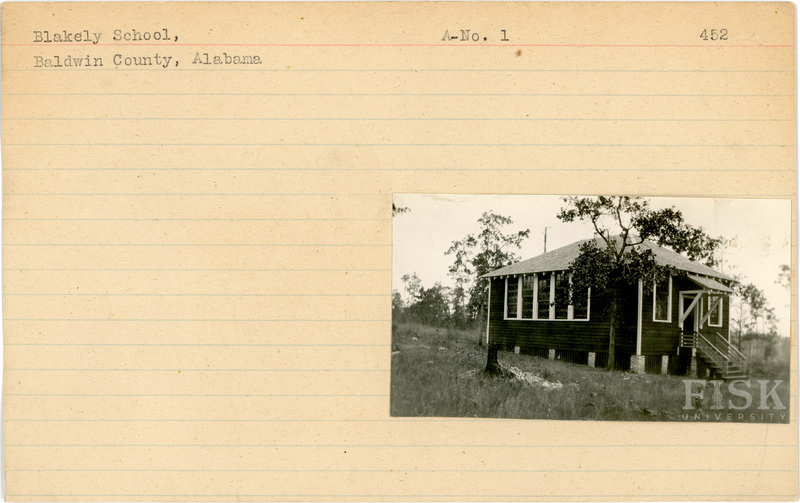 Blakely School, A-No. 1 452
Baldwin County, Alabama
FISK
UNIVERSITY